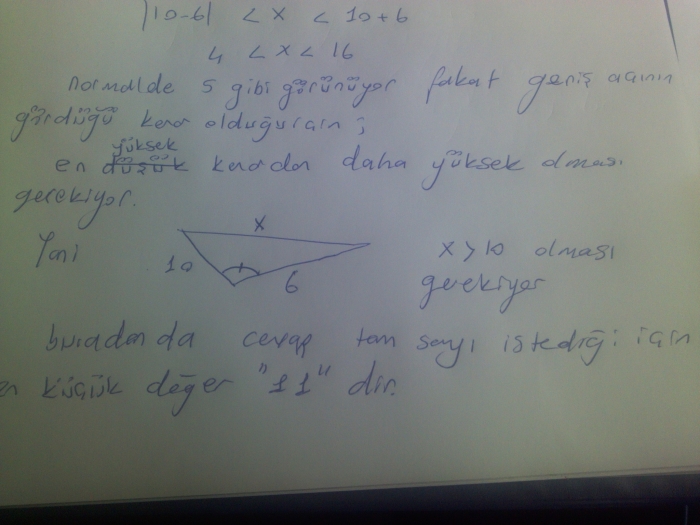 |10-6| < x < 10+6
4 < x < 16
normalde 5 gibi görünüyor fakat geniş açının
gördüğü kenar olduğu için ;
yüksek
en düşük kenardan daha yüksek olması
gerekiyor.
Yani
x
10
6
x > 10 olması
gerekiyor
buradanda cevap tam sayı istediği için
en küçük değer "11" dir.